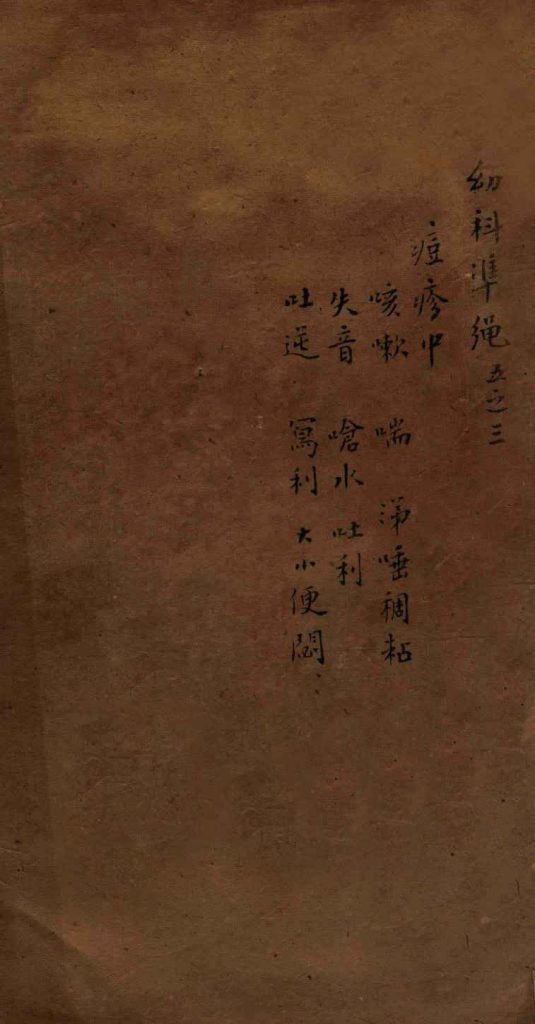 幼科準繩 五之三
痘疹中
咳嗽 喘 涕唾稠粘
失音 嗆水 吐利
吐逆 寫利 大小便閟